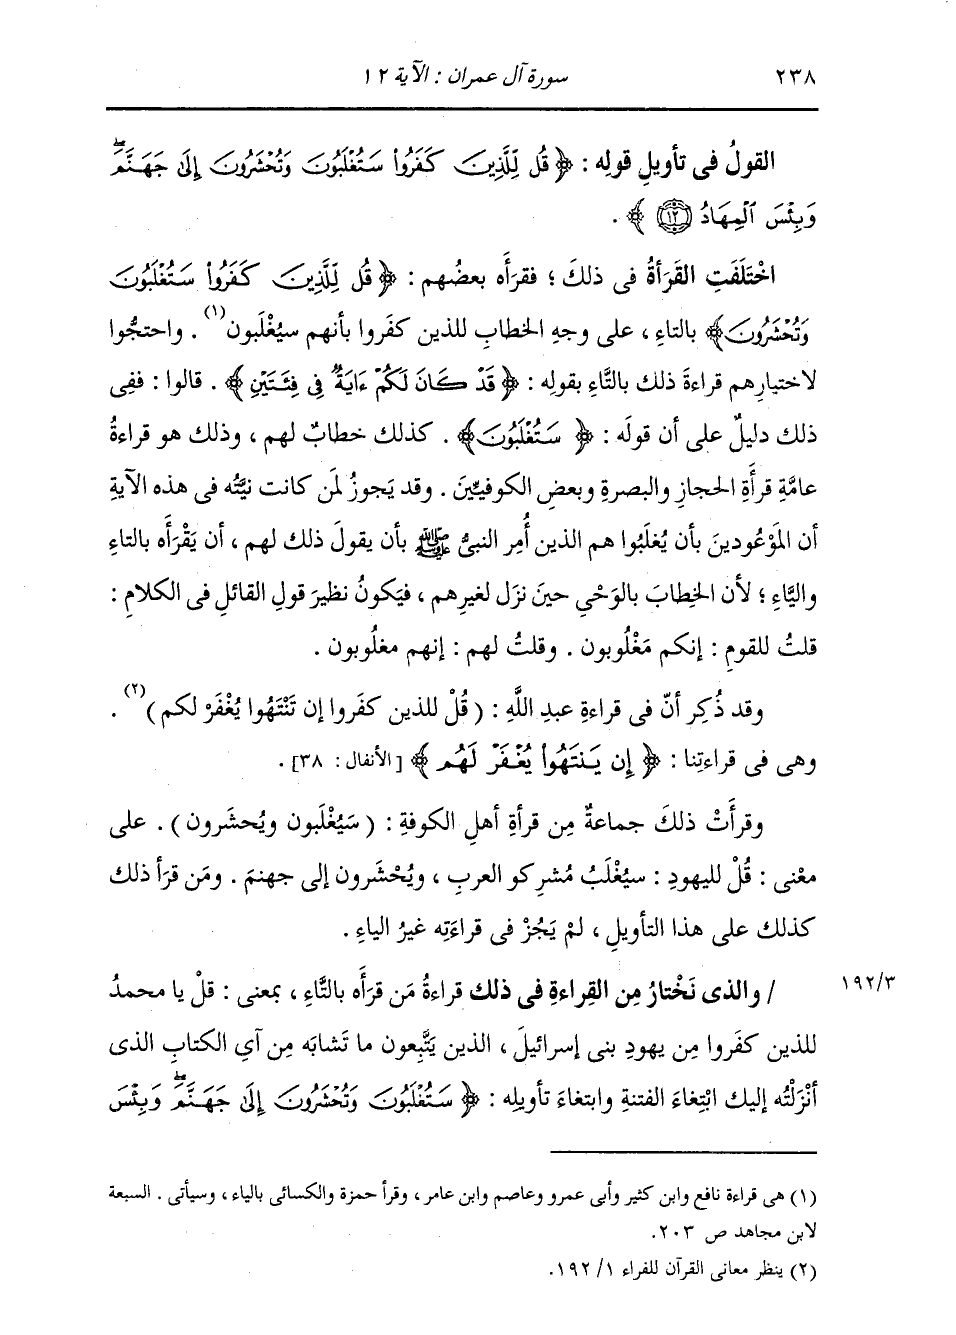 ٢٣٨ سورة آل عمران : الآية ١٢
القولُ فى تأويلِ قولِه : ﴿ قُل لِّلَّذِينَ كَفَرُوا۟ سَتُغْلَبُونَ وَتُحْشَرُونَ إِلَىٰ جَهَنَّمَۖ
وَبِئْسَ ٱلْمِهَادُ ⑫ ﴾ .
اخْتَلَفَتِ القَرَأةُ فى ذلكَ ؛ فقرَأَه بعضُهم : ﴿ قُل لِّلَّذِينَ كَفَرُوا۟ سَتُغْلَبُونَ
وَتُحْشَرُونَ﴾ بالتاءِ ، على وجهِ الخطابِ للذين كفَروا بأنهم سيُغْلَبون(١) . واحتجُّوا
لاختيارِهم قراءةَ ذلك بالتَّاءِ بقولِه : ﴿ قَدْ كَانَ لَكُمْ ءَايَةٌ فِى فِئَتَيْنِ ﴾ . قالوا : ففِى
ذلك دليلٌ على أن قولَه : ﴿ سَتُغْلَبُونَ﴾ . كذلك خطابٌ لهم ، وذلك هو قراءةُ
عامَّةِ قرأَةِ الحجازِ والبصرةِ وبعضِ الكوفيِّينَ . وقد يَجوزُ لمَن كانت نيَّتُه فى هذه الآيةِ
أن المَوْعُودينَ بأن يُغلَبُوا هم الذين أُمِر النبىُّ ﷺ بأن يقولَ ذلك لهم ، أن يَقْرَأَه بالتاءِ
والياَّءِ ؛ لأن الخِطابَ بالوَحْىِ حينَ نزَل لغيرِهم ، فيَكونُ نظيرَ قولِ القائلِ فى الكلامِ :
قلتُ للقومِ : إنكم مَغْلُوبون . وقلتُ لهم : إنهم مغلُوبون .
وقد ذُكِر أنّ فى قراءةِ عبدِ اللَّهِ : ( قُلْ للذين كفَروا إن تَنْتَهُوا يُغْفَرْ لكم )(٢) .
وهى فى قراءتِنا : ﴿ إِن يَنتَهُوا۟ يُغْفَرْ لَهُم ﴾ [الأنفال : ٣٨] .
وقرأَتْ ذلكَ جماعةٌ مِن قرأةِ أهلِ الكوفةِ : ( سَيُغْلَبون ويُحشَرون ) . على
معْنى : قُلْ لليهودِ : سيُغْلَبُ مُشرِكو العربِ ، ويُحْشَرون إلى جهنمَ . ومَن قرَأ ذلك
كذلك على هذا التأويلِ ، لمْ يَجُزْ فى قراءَتِه غيرُ الياءِ .
١٩٢/٣ / والذى نَخْتارُ مِن القِراءةِ فى ذلك قراءةُ مَن قرَأَه بالتَّاءِ ، بمعنى : قلْ يا محمدُ
للذين كفَروا مِن يهودِ بنى إسرائيلَ ، الذين يَتَّبِعون ما تَشابَه مِن آىِ الكتابِ الذى
أنْزَلْتُه إليك ابْتِغاءَ الفتنةِ وابتغاءَ تأويلِه : ﴿ سَتُغْلَبُونَ وَتُحْشَرُونَ إِلَىٰ جَهَنَّمَۖ وَبِئْسَ
(١) هى قراءة نافع وابن كثير وأبى عمرو وعاصم وابن عامر ، وقرأ حمزة والكسائى بالياء ، وسيأتى . السبعة
لابن مجاهد ص ٢٠٣.
(٢) ينظر معانى القرآن للفراء ١/ ١٩٢.